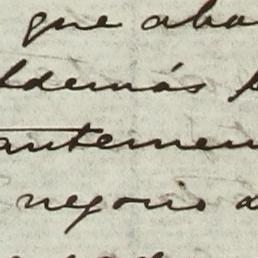 que aba
ldemás p
antemen
negocio d